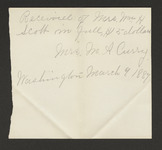 Received of Mrs Wm H
Scott in full $ 5 dollars
Mrs M A Curry
Washington March 9